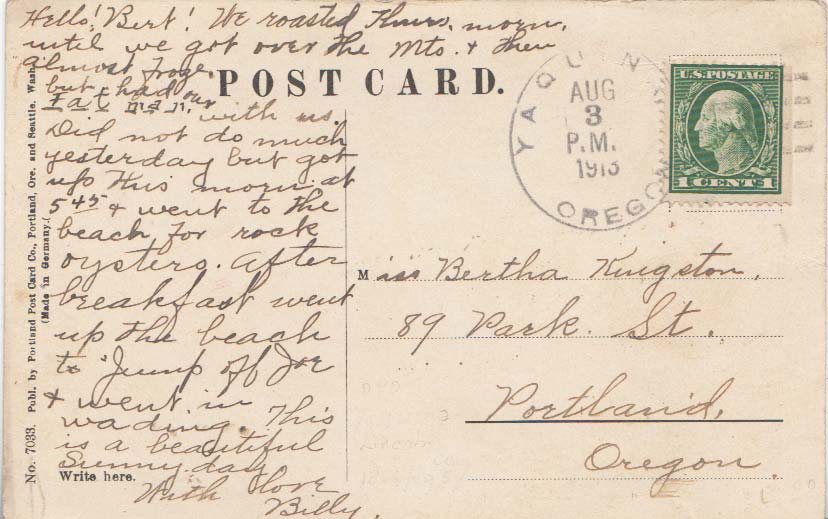 Hello! Bert! We roasted Thurs. morn.
until we got over the Mts. & then
almost froze.
but had our
fat man, with us.
Did not do much
yesterday but got
up this morn. at
5 45 & went to the
beach for rock
oysters. After
breakfast went
up the beach
to Jump off Joe
& went in
wading. This
is a beautiful
Sunny day
With love
Billy.
Write here.
No. 7033. Publ. by Portland Post Card Co., Portland, Ore. and Seattle, Wash.
(Made in Germany.)
POST CARD.
YAQUIN
AUG
3
P.M.
1913
OREGON
U.S. POSTAGE
1 CENT 1
Miss Bertha Kingston,
89 Park. St.
Portland,
Oregon.